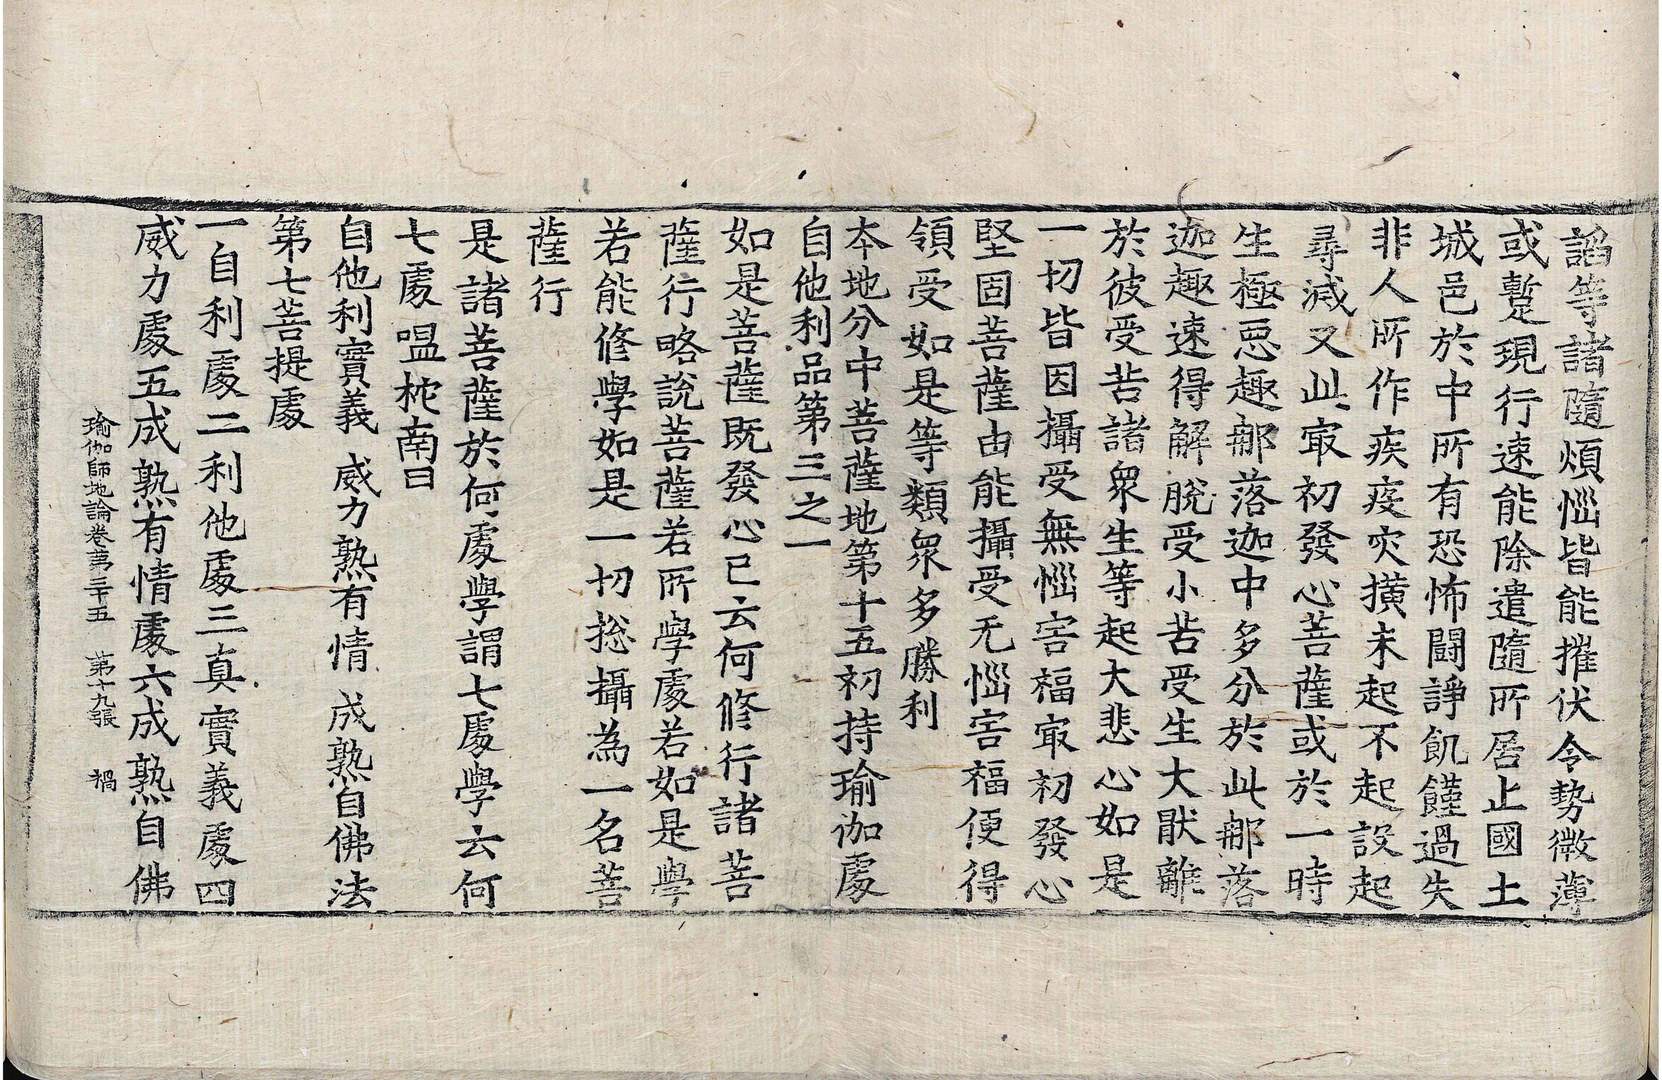 諂等諸隨煩惱皆能摧伏令勢微薄
或蹔現行速能除遣隨所居止國土
城邑於中所有恐怖鬪諍飢饉過失
非人所作疾疫灾撗未起不起設起
尋滅又此㝡初發心菩薩或於一時
生極惡趣那落迦中多分於此那落
迦趣速得解脫受小苦受生大猒離
於彼受苦諸衆生等起大悲心如是
一切皆因攝受無惱害福㝡初發心
堅固菩薩由能攝受无惱害福便得
領受如是等類衆多勝利
本地分中菩薩地第十五初持瑜伽處
自他利品第三之一
如是菩薩既發心已云何修行諸菩
薩行略說菩薩若所學處若如是學
若能修學如是一切揔攝為一名菩
薩行
是諸菩薩於何處學謂七處學云何
七處嗢柁南曰
自他利實義 威力熟有情 成熟自佛法
第七菩提處
一自利處二利他處三真實義處四
瑜伽師地論卷第三十五 第十九張 禍
威力處五成熟有情處六成熟自佛